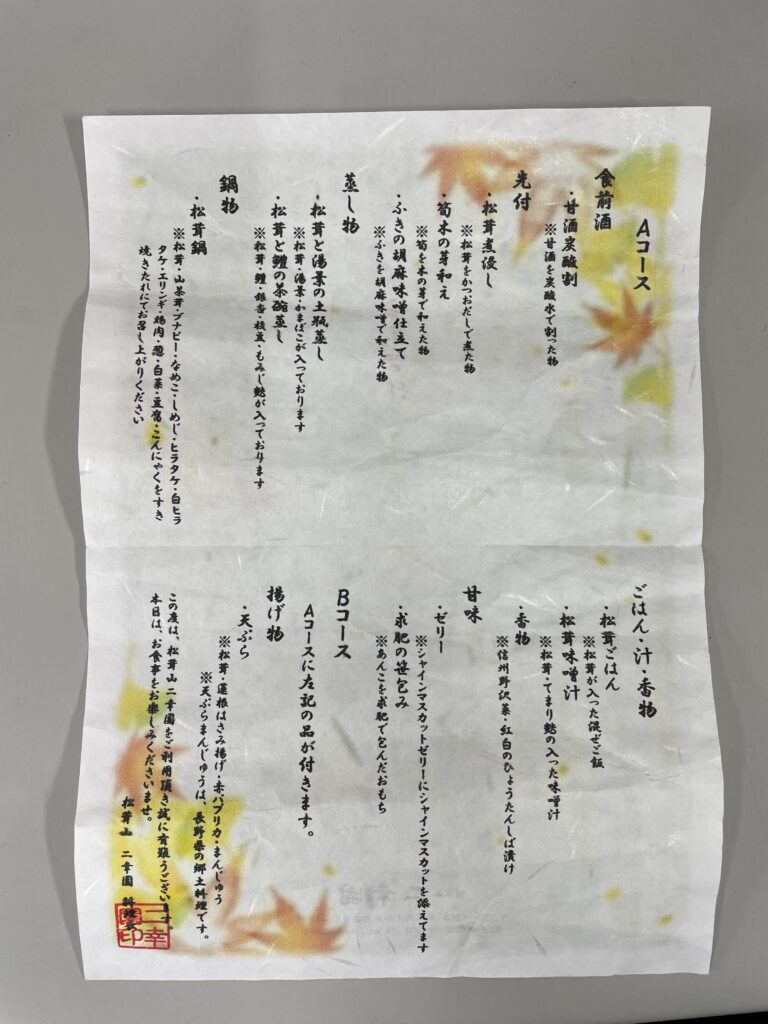 Aコース
食前酒
・甘酒炭酸割
※甘酒を炭酸水で割った物
先付
・松茸煮浸し
※松茸をかつおだしで煮た物
・筍木の芽和え
※筍を木の芽で和えた物
・ふきの胡麻味噌仕立て
※ふきを胡麻味噌で和えた物
蒸し物
・松茸と湯葉の土瓶蒸し
※松茸・湯葉・かまぼこが入っております
・松茸と鱧の茶碗蒸し
※松茸・鱧・銀杏・枝豆・もみじ麩が入っております
鍋物
・松茸鍋
※松茸・山茶茸・ブナピー・なめこ・しめじ・ヒラタケ・白ヒラ
タケ・エリンギ・鶏肉・葱・白菜・豆腐・こんにゃくをすき
焼きたれにてお召し上がりください
ごはん・汁・香物
・松茸ごはん
※松茸が入った混ぜご飯
・松茸味噌汁
※松茸・てまり麩の入った味噌汁
・香物
※信州野沢菜・紅白のひょうたんしば漬け
甘味
・ゼリー
※シャインマスカットゼリーにシャインマスカットを添えてます
・求肥の笹包み
※あんこを求肥で包んだおもち
Bコース
Aコースに左記の品が付きます。
揚げ物
・天ぷら
※松茸・蓮根はさみ揚げ・赤パプリカ・まんじゅう
※天ぷらまんじゅうは、長野県の郷土料理です。
この度は、松茸山 二幸園をご利用頂き誠に有難うございます。
本日は、お食事をお楽しみくださいませ。
松茸山 二幸園 料理長
二幸園印